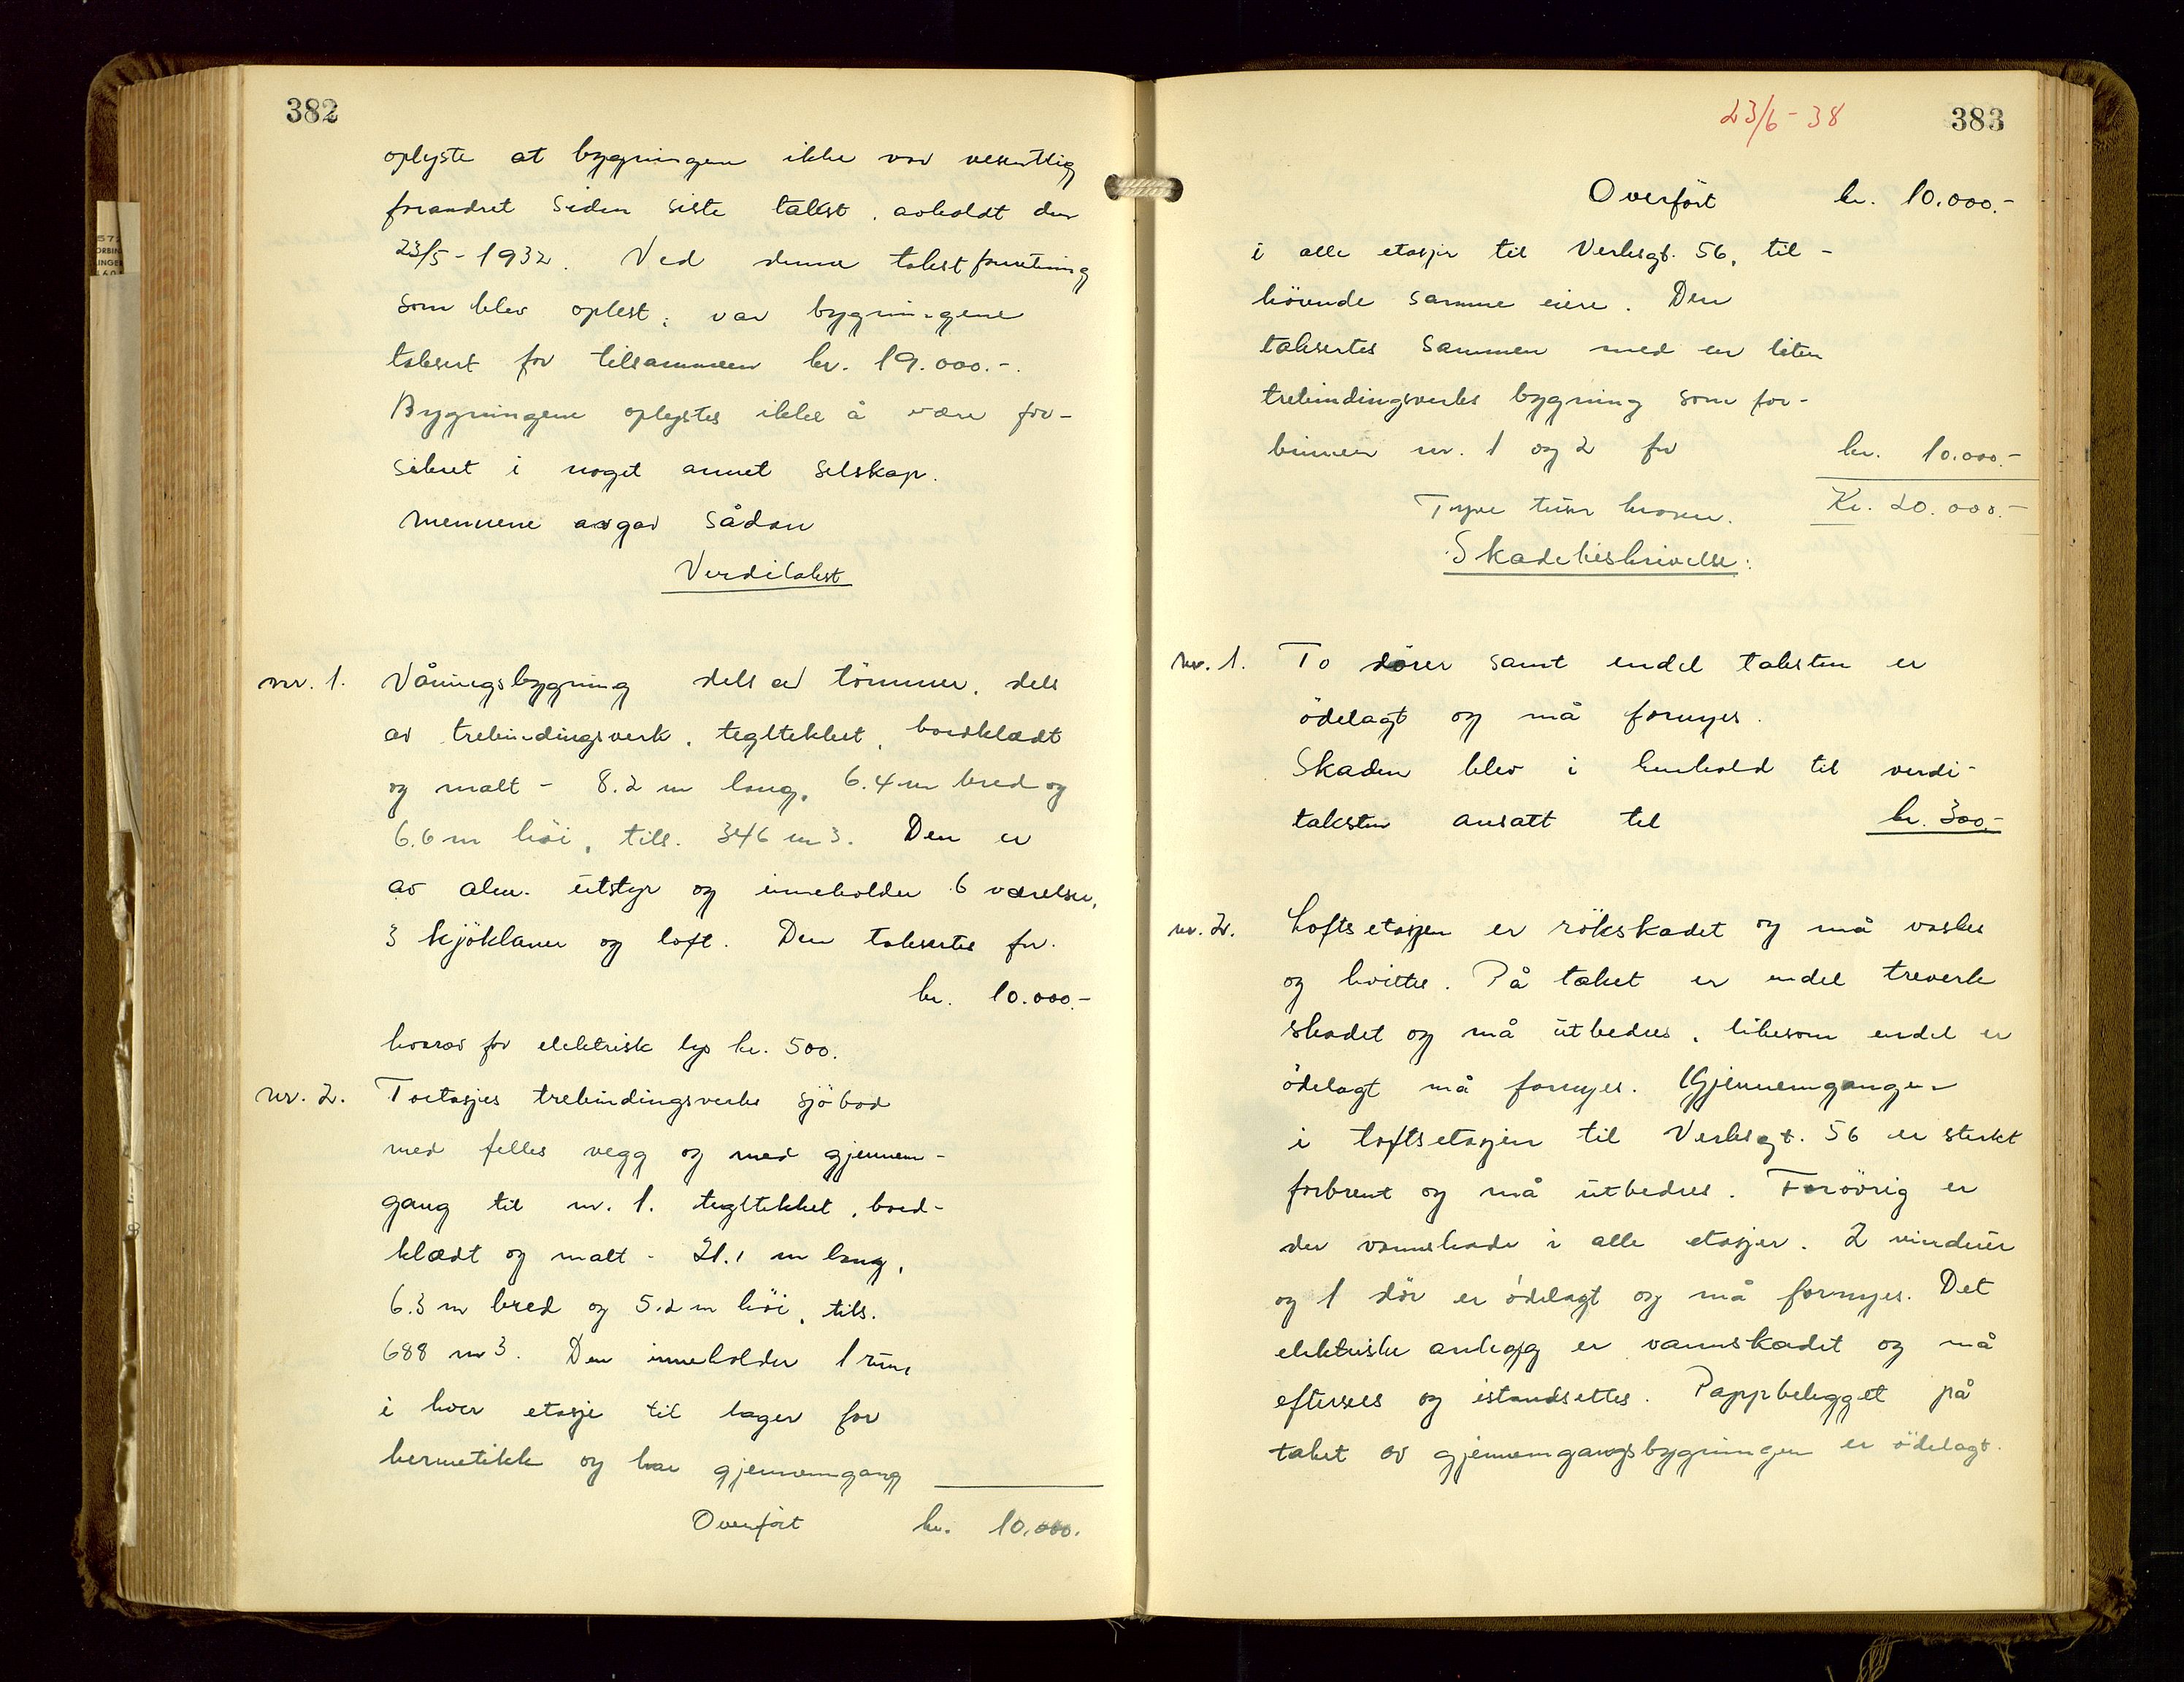 382
oplyste at bygningen ikke var vesentlig
forandret siden siste takst, avholdt den
23/5-1932. Ved denne takstforretning
som blev oplest, var bygningene
taksert for tilsammen kr. 19.000.-.
Bygningene oplystes ikke å være for-
sikret i noget annet selskap.
Mennene avgav sådan
Verditakst
nr. 1. Våningsbygning dels av tömmer, dels
av trebindingsverk, tegltekket, bordklædt
og malt - 8.2 m lang, 6.4 m bred og
6.6 m höi, tils. 346 m3. Den er
av alm. utstyr og inneholder 6 værelser,
3 kjökkener og loft. Den taksertes for.
kr. 10.000.-
hvorav for elektrisk lys kr. 500.
nr. 2. Toetasjes trebindingsverks sjöbod
med felles vegg og med gjennem-
gang til nr. 1. tegltekket, bord-
klædt og malt - 21.1 m lang,
6.3 m bred og 5.2 m höi, tils.
688 m3. Den inneholder 1 rum
i hver etasje til lager for
hermetikk og har gjennemgang
Overfört kr. 10.000.
23/6-38
383
Overfört kr. 10.000.-
i alle etasjer til Verksgt. 56, til-
hörende samme eiere. Den
taksertes sammen med en liten
trebindingsverks bygning som for-
binner nr. 1 og 2 for kr. 10.000.-
Tyve tusen kroner. Kr. 20.000.-
Skadebeskrivelse:
nr. 1. To dörer samt endel taksten er
ödelagt og må fornyes.
Skaden blev i henhold til verdi-
taksten ansatt til kr. 300.-
nr. 2. Loftsetasjen er rökskadet og må vaskes
og hvittes. På taket er endel treverk
skadet og må utbedres, likesom endel er
ödelagt må fornyes. Gjennemgangen
i loftsetasjen til Verksgt. 56 er sterkt
forbrent og må utbedres. Forövrig er
der vannskade i alle etasjer. 2 vinduer
og 1 dör er ödelagt og må fornyes. Det
elektriske anlegg er vannskadet og må
efterses og istandsettes. Pappbelegget på
taket av gjennemgangsbygningen er ödelagt.